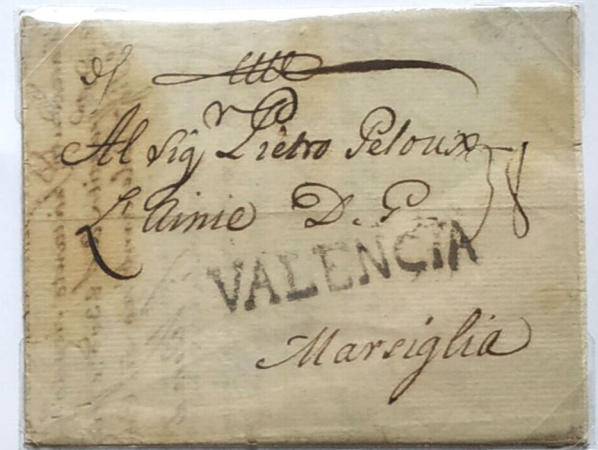 Al Sig.r Pietro Peloux
L'Ainié D. G.
VALENCIA
Marsiglia